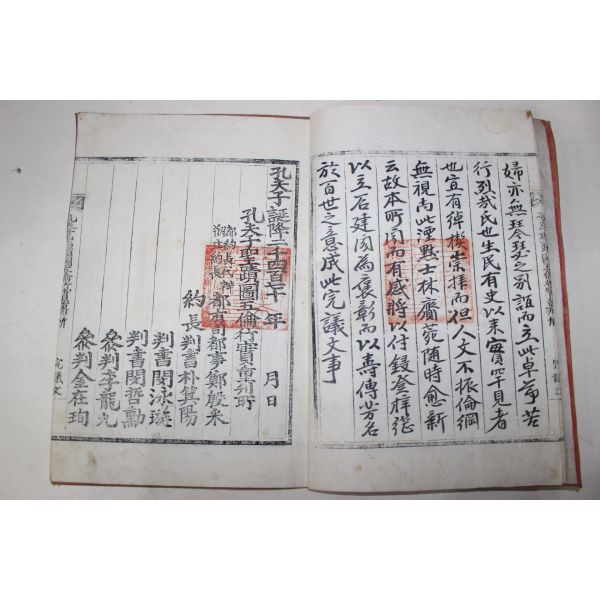 婦亦無琴瑟之別誼而立此卓節苦
行烈哉氏世生民有史以來實罕見者
也宜有綽楔崇拜而但人文不振倫綱
無視尚此湮黙士林齎菀隨時愈新
云故本所聞而有感將以付鋟參考從
以立石建閣為褒彰而以壽傳芳名
於百世之意成此完議文事
孔夫子誕降二千四百七十 年 月 日
孔夫子聖蹟圖五倫行實重刊所
都約長代辦
都有司都事鄭殷采
約長 判書朴箕陽
判書閔泳璇
判書閔哲勳
參判李龍九
參判金在珣
完議文